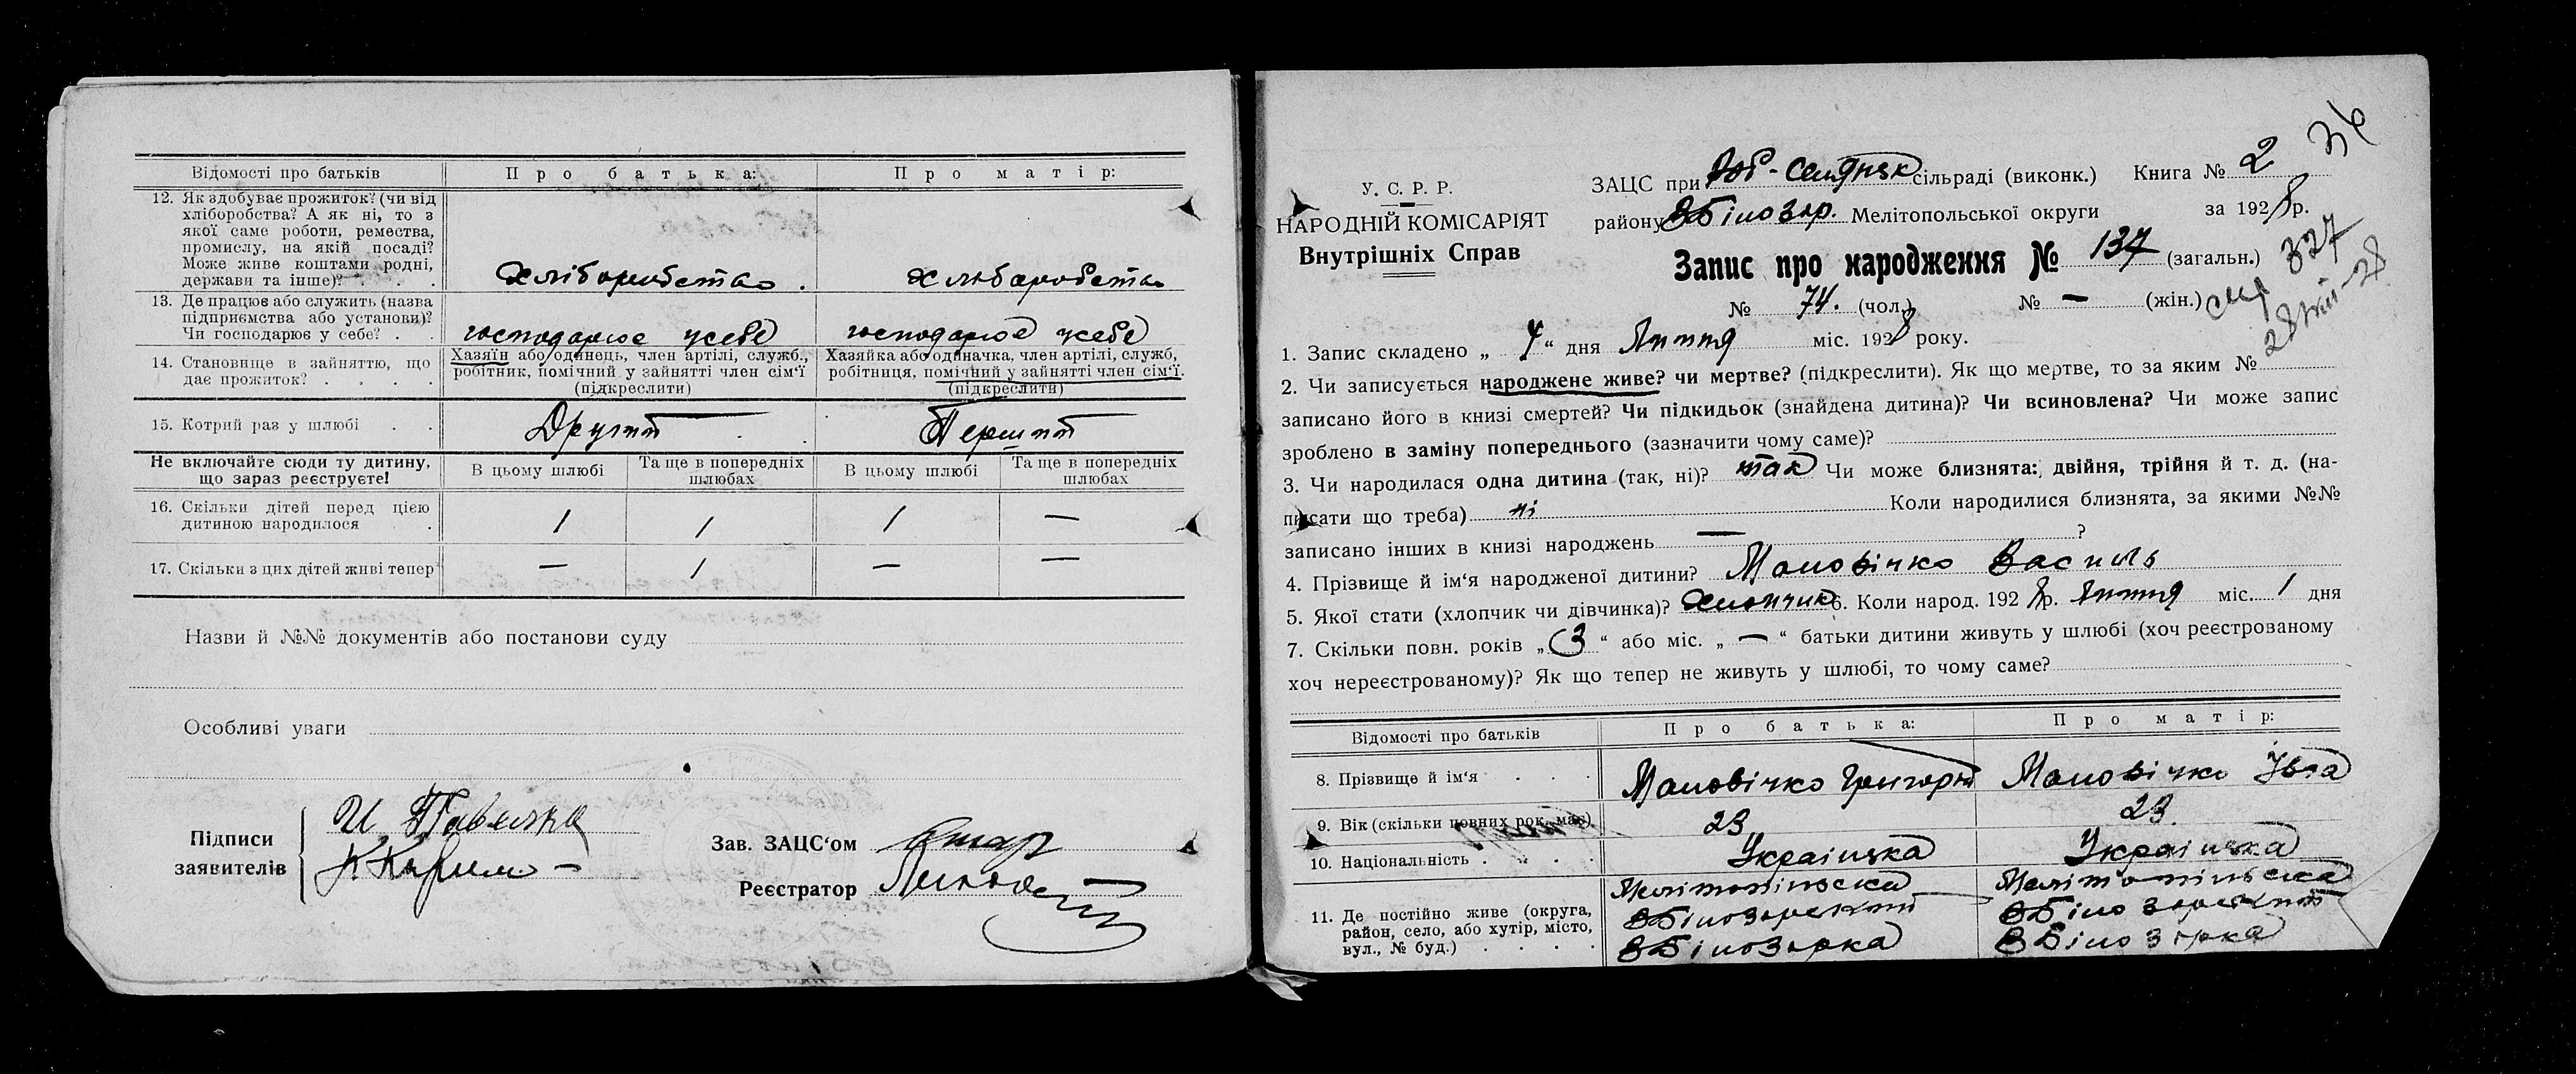 Відомості про батьків
Про батька:
Про матір:
12. Як здобуває прожиток? (чи від
хліборобства? А як ні, то з
якої саме роботи, ремества,
промислу, на якій посаді?
Може живе коштами родні,
держави та інше)? . . .
Хліборобство.
Хлюбаробство
13. Де працює або служить (назва
підприємства або установи)?
Чи господарює у себе? . .
господарює усебе
господарює усебе
14. Становище в зайняттю, що
дає прожиток? . . . .
Хазяїн або одинець, член артілі, служб.,
робітник, помічний у зайнятті член сім'ї
(підкреслити)
Хазяйка або одиначка, член артілі, служб,
робітниця, помічний у зайнятті член сім'ї.
(підкреслити)
15. Котрий раз у шлюбі . .
Другий
Перший
Не включайте сюди ту дитину,
що зараз реєструєте!
В цьому шлюбі
Та ще в попередніх
шлюбах
В цьому шлюбі
Та ще в попередніх
шлюбах
16. Скільки дітей перед цією
дитиною народилося .
1 1 1 —
17. Скільки з цих дітей живі тепер
— 1 — —
Назви й №№ документів або постанови суду
Особливі уваги
Підписи
заявителів
Зав. ЗАЦС'ом
Реєстратор
34
У. С. Р. Р.
НАРОДНІЙ КОМІСАРІЯТ
Внутрішніх Справ
ЗАЦС при сільраді (виконк.) Книга № 2
району ВБілозір. Мелітопольської округи за 1928 р.
Запис про народження № 137 (загальн.)
327
№ 74. (чол.) № — (жін.)
1. Запис складено „ 4 “ дня Липня міс. 1928 року.
2. Чи записується народжене живе? чи мертве? (підкреслити). Як що мертве, то за яким №
записано його в книзі смертей? Чи підкидьок (знайдена дитина)? Чи всиновлена? Чи може запис
зроблено в заміну попереднього (зазначити чому саме)?
3. Чи народилася одна дитина (так, ні)? так Чи може близнята: двійня, трійня й т. д. (на-
писати що треба) ні Коли народилися близнята, за якими №№
записано інших в книзі народжень — ?
4. Прізвище й ім'я народженої дитини? Маловічко Василь
5. Якої стати (хлопчик чи дівчинка)? Хлопчик 6. Коли народ. 1928 р. Липня міс. 1 дня
7. Скільки повн. років „ 3 “ або міс. „ — “ батьки дитини живуть у шлюбі (хоч реєстрованому
хоч нереєстрованому)? Як що тепер не живуть у шлюбі, то чому саме?
Відомості про батьків
Про батька:
Про матір:
8. Прізвище й ім'я . . .
Маловічко Григорій
Маловічко
9. Вік (скільки повних рок. має)
23
23.
10. Національність . . . .
Українська
Українська
11. Де постійно живе (округа,
район, село, або хутір, місто,
вул., № буд.) . . . .
Мелітопільска
ВБілозірский
ВБілозірка
Мелітопільска
ВБілозірский
ВБілозірка